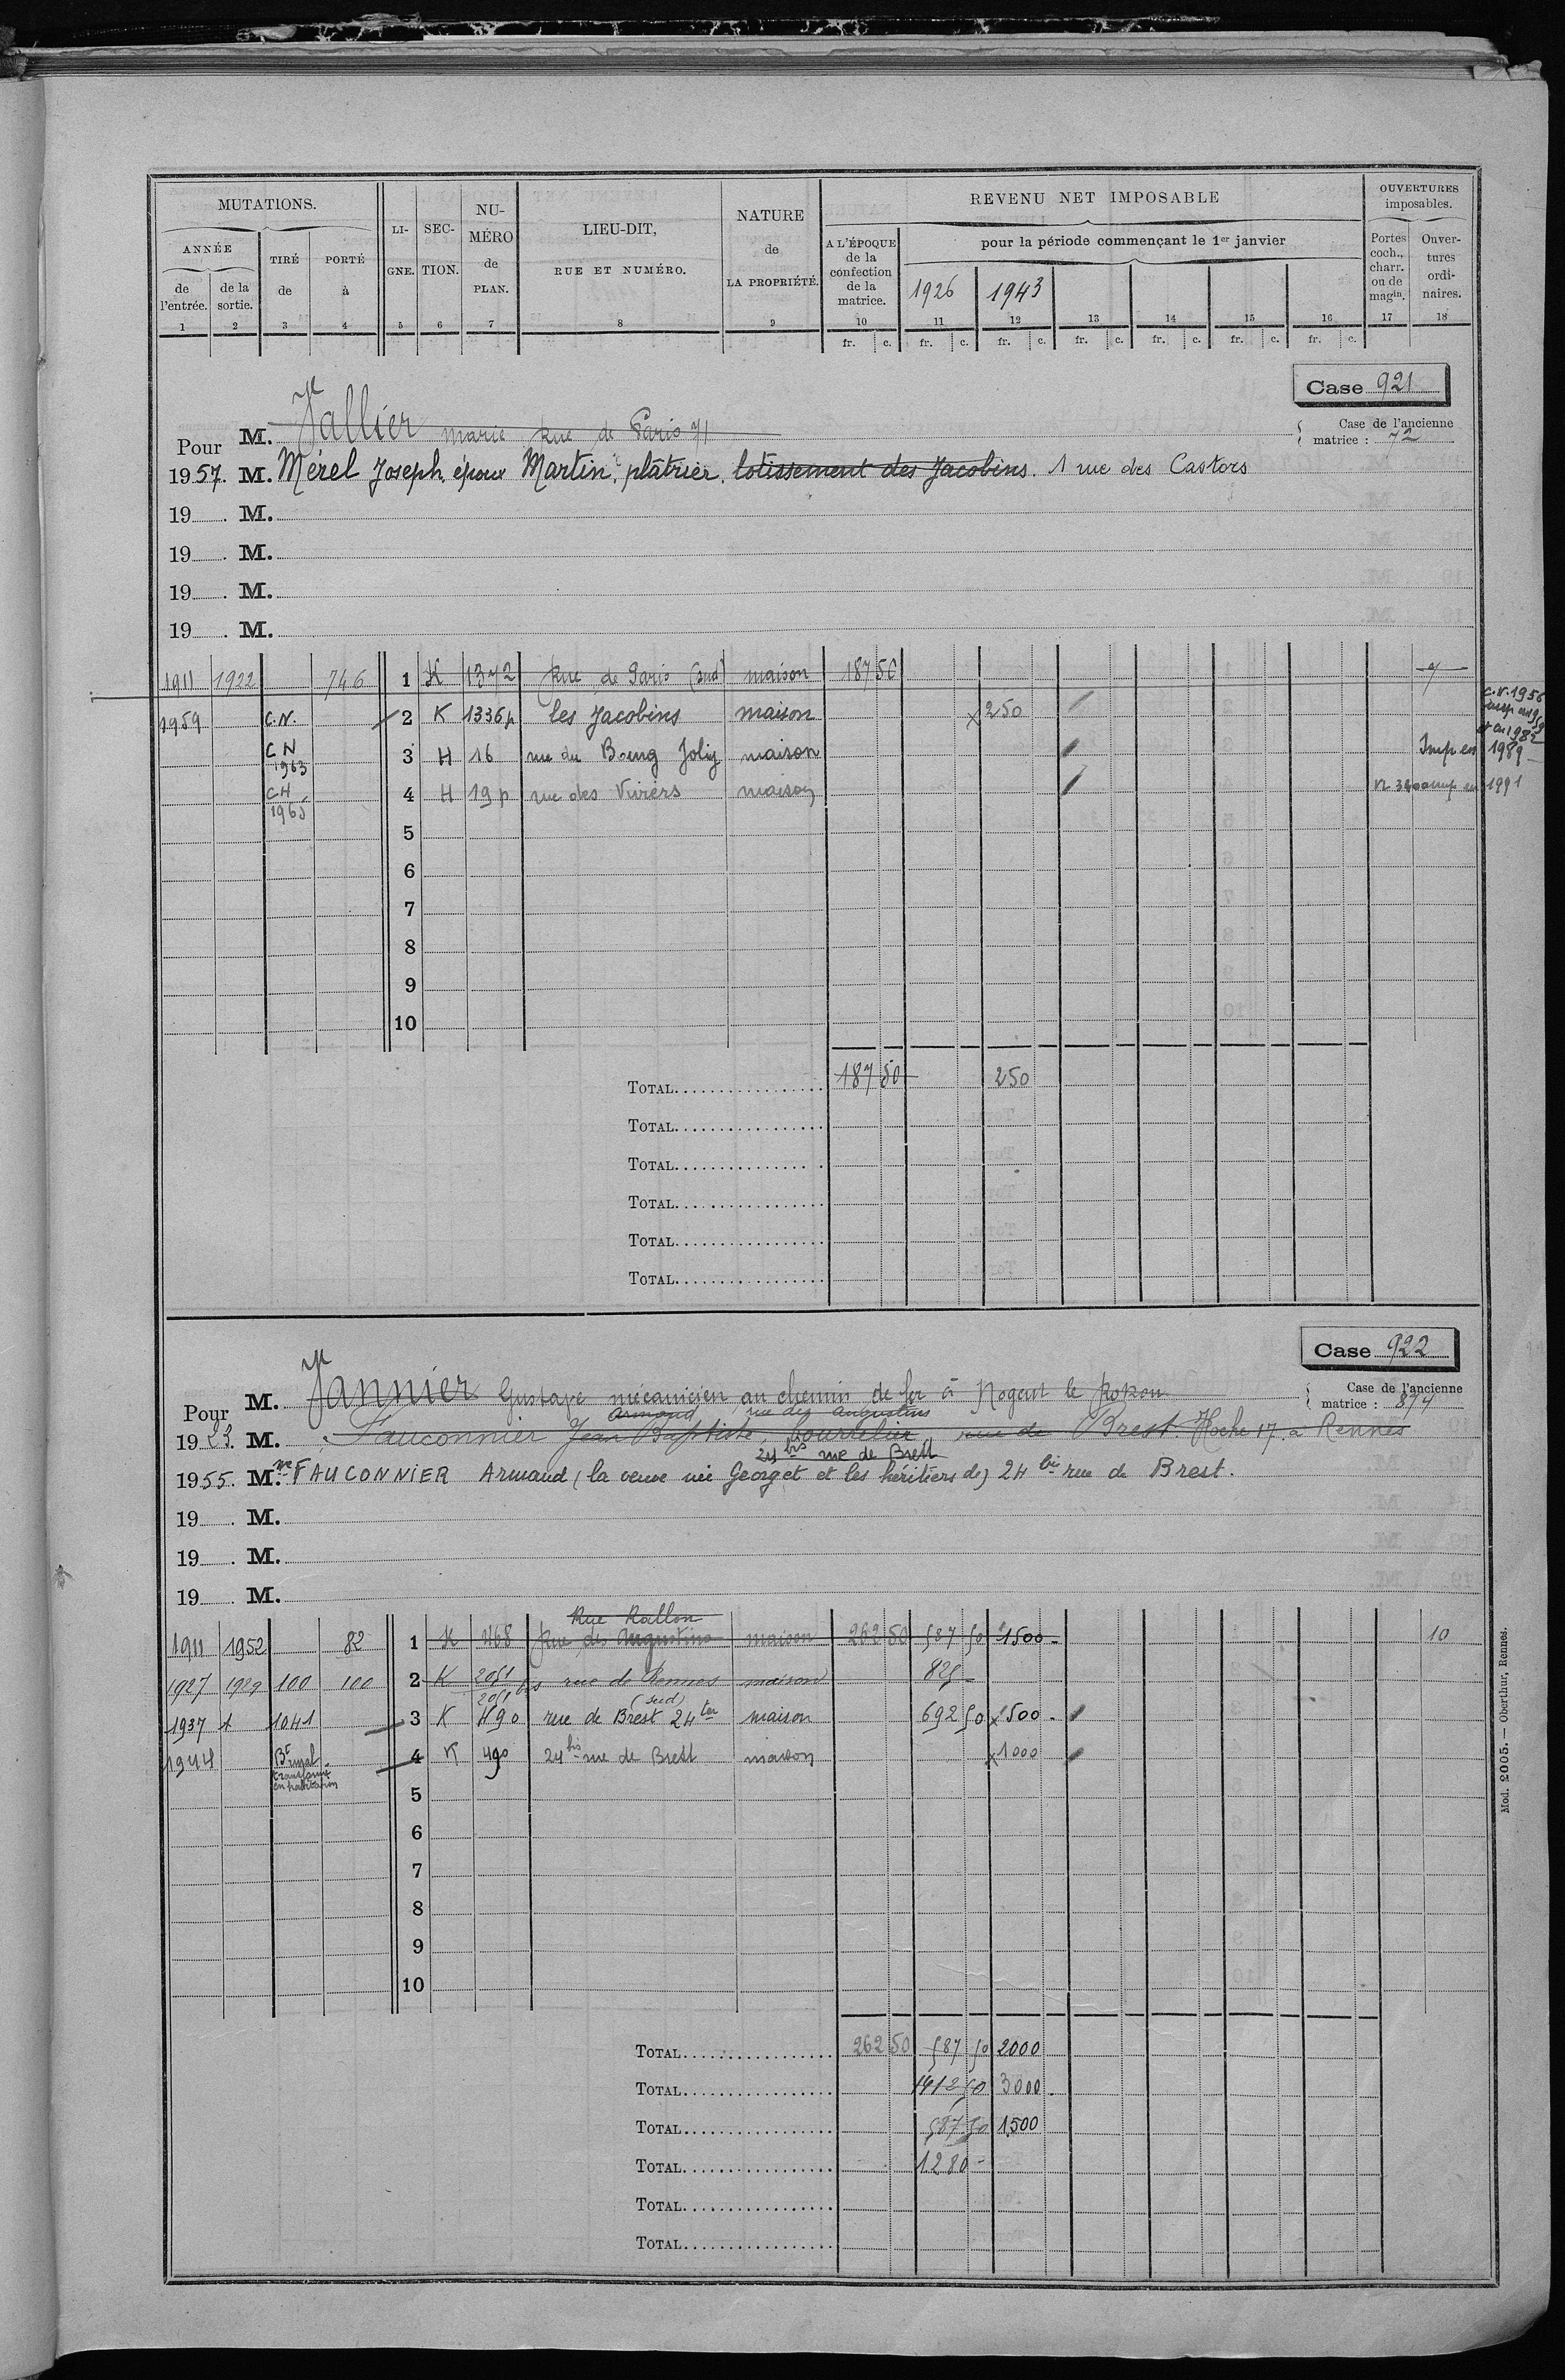 MUTATIONS. LI- SEC- NU- LIEU-DIT, NATURE REVENU NET IMPOSABLE OUVERTURES imposables.
ANNÉE TIRÉ PORTÉ GNE. TION. MÉRO RUE ET NUMÉRO. de A L'ÉPOQUE pour la période commençant le 1er janvier Portes Ouver-
de l'entrée. de la sortie. de à de PLAN. LA PROPRIÉTÉ. de la confection de la matrice. 1926 1943 coch., charr. ou de magin. tures ordi- naires.
1 2 3 4 5 6 7 8 9 10 11 12 13 14 15 16 17 18
fr. c. fr. c. fr. c. fr. c. fr. c. fr. c. fr. c.
Case 921
Pour M. Vallier Marie Rue de Paris 71 Case de l'ancienne matrice : 72
1957. M. Mérel Joseph, époux Martin, plâtrier, lotissement des Jacobins. 1 rue des Castors
19 . M.
19 . M.
19 . M.
19 . M.
1911 1922 746 1 K 1372 Rue de Paris (sud) maison 187 50 7
1959 C.N. 2 K 1336p les Jacobins maison x250 C.N. 1956
C N 1963 3 H 16 rue du Bourg Joly maison Imp en 1989
1965 4 H 19p rue des Viviers maison 1991
5
6
7
8
9
10
TOTAL 187 50 250
TOTAL
TOTAL
TOTAL
TOTAL
TOTAL
Case 922
Pour M. Vannier Gustave mécanicien au chemin de fer à Nogent le Rotrou Case de l'ancienne matrice : 874
Armand rue des Augustins
1923. M. Fauconnier Jean Baptiste, bourrelier, rue de Brest. Hoche 17. à Rennes
24 bis rue de Brest
1955. Mme FAUCONNIER Armand (la veuve née Georget et les héritiers de) 24 bis rue de Brest.
19 . M.
19 . M.
19 . M.
Rue Rallon
1911 1952 82 1 K 468 Rue des Augustins maison 262 50 587 50 1500 - 10
1927 1929 100 100 2 K 2051 rue de Rennes maison 825 -
1937 1041 3 K 490 rue de Brest (sud) 24 ter maison 692 50 x500 -
1944 Bt rural transformé en habitation 4 K 490 24 bis rue de Brest maison x1000
5
6
7
8
9
10
TOTAL 262 50 587 50 2000
TOTAL 1412 50 3000.
TOTAL 587 50 1500
TOTAL 1280 -
TOTAL
TOTAL
Mod. 2005. — Oberthur, Rennes.